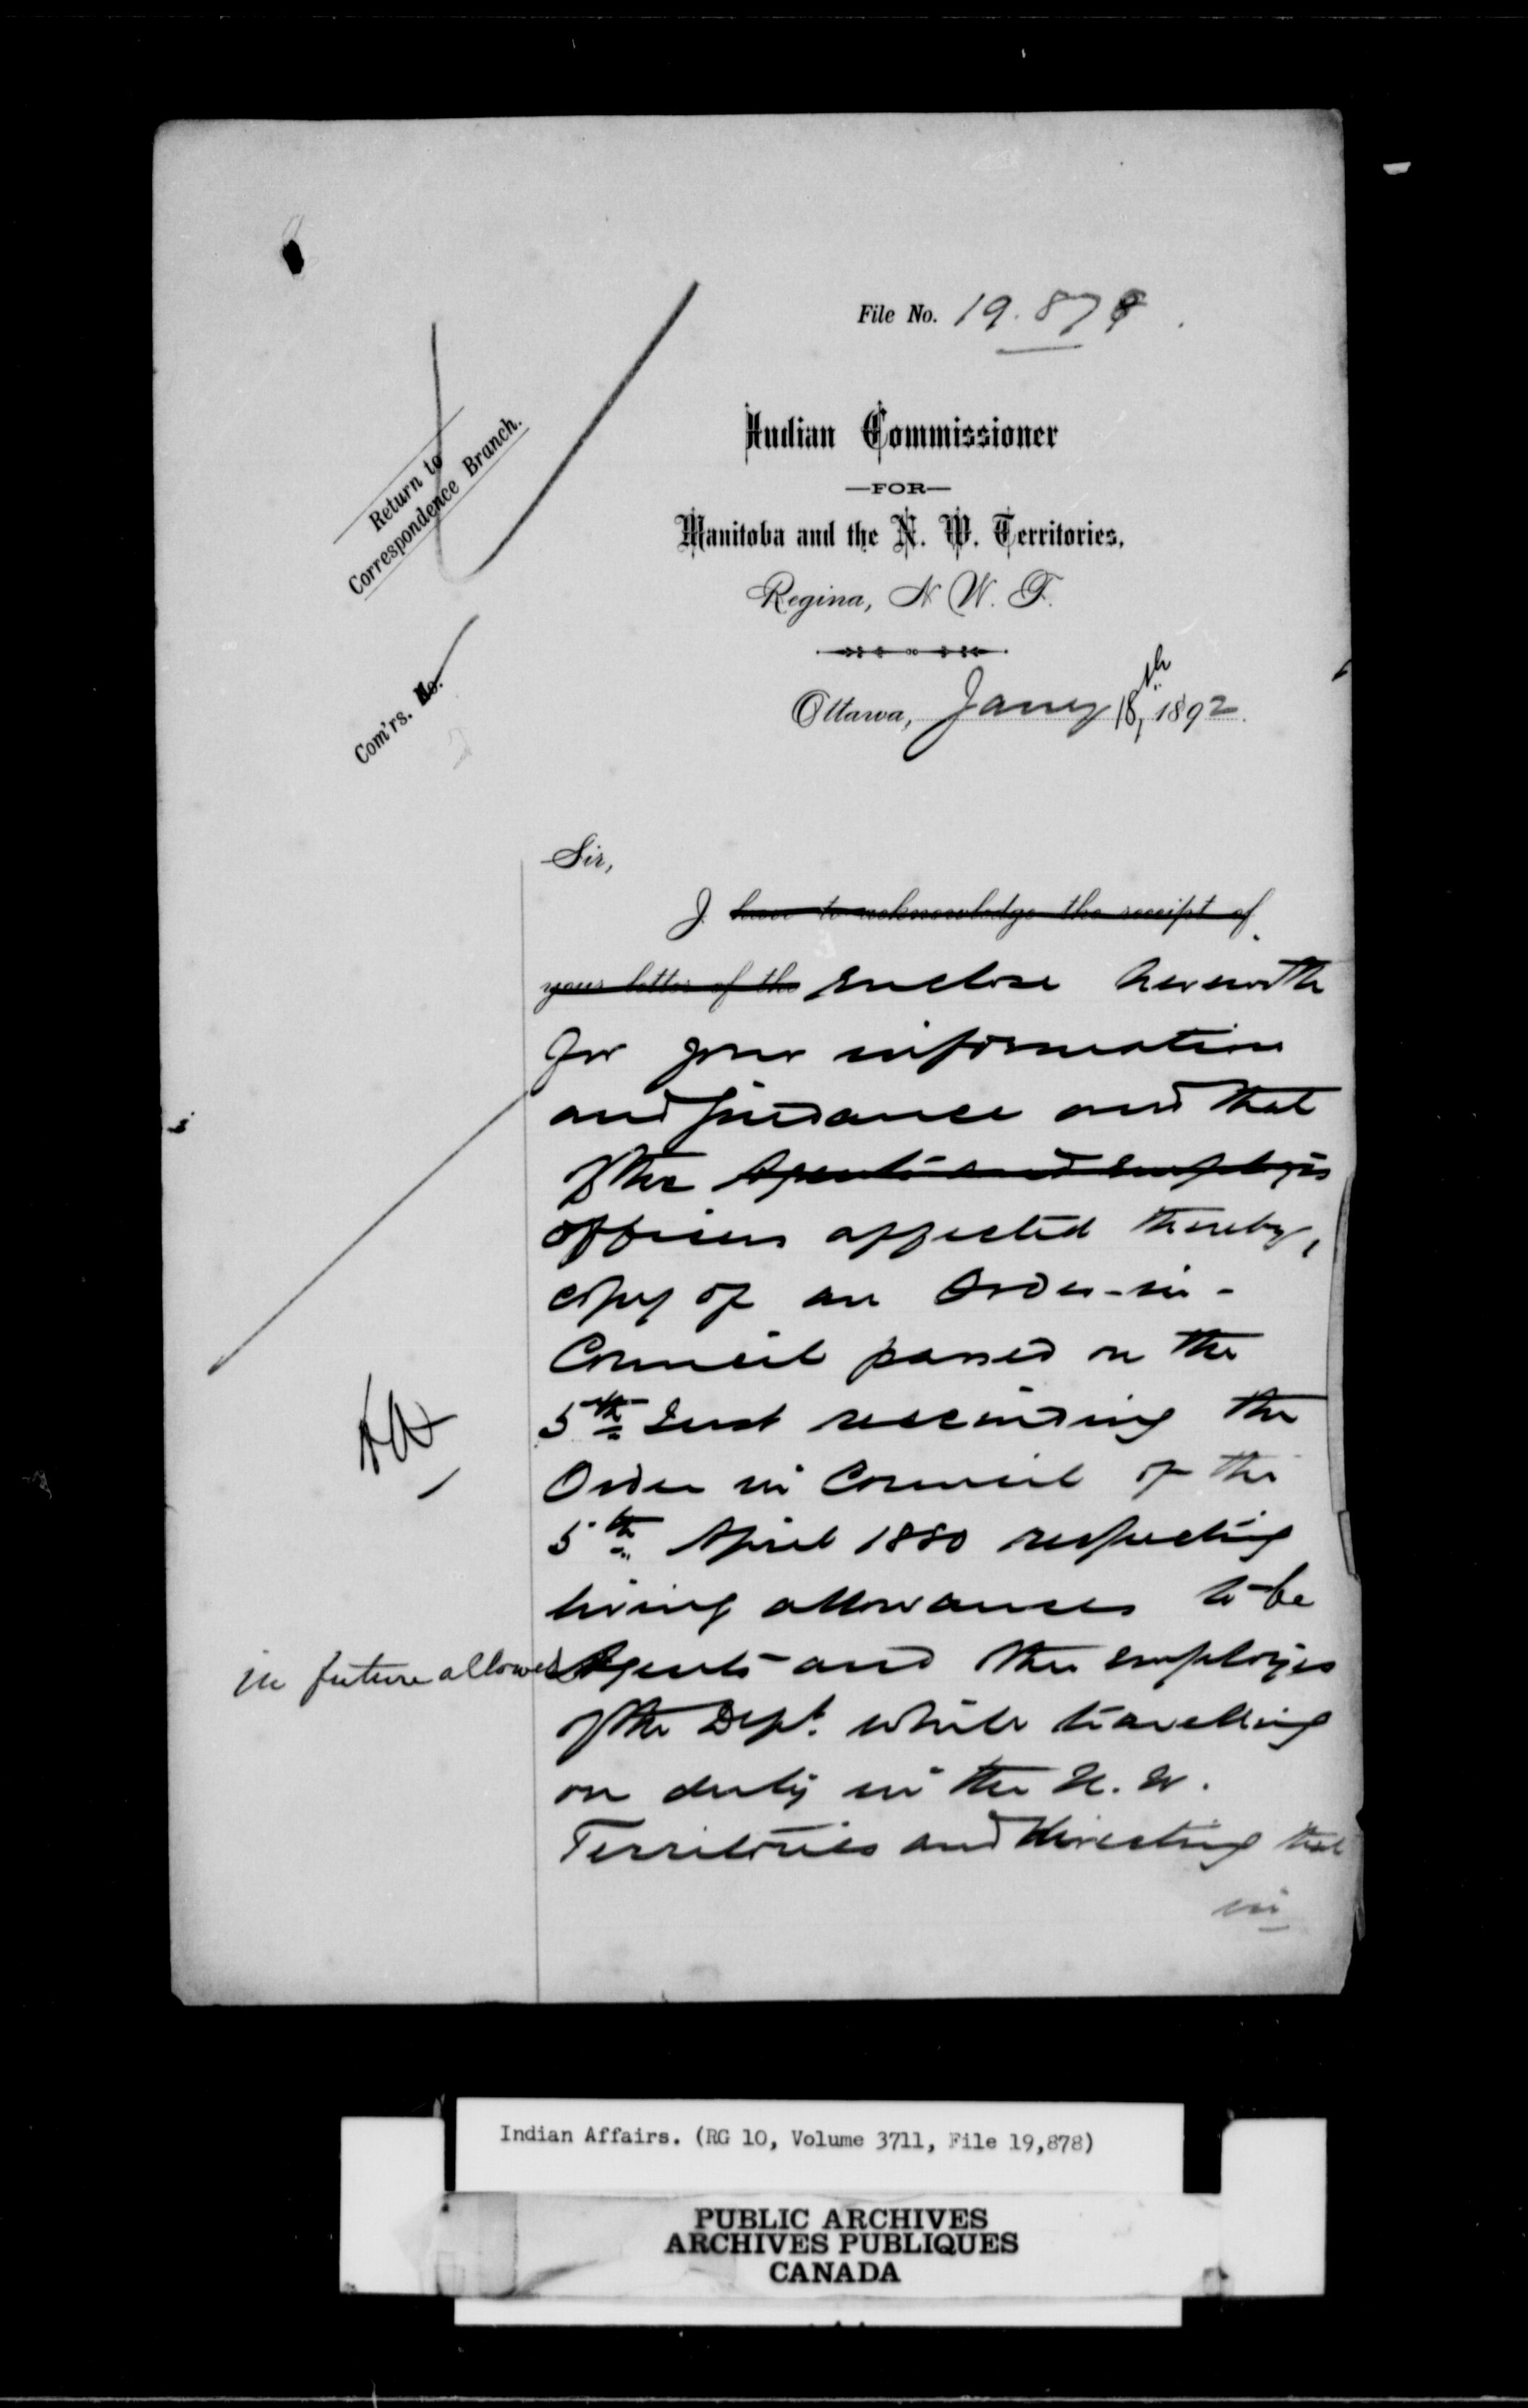 File No. 19.878
Indian Commissioner
—FOR—
Manitoba and the N. W. Territories,
Regina, N. W. T.
Return to
Correspondence Branch.
Com'rs. No.
Ottawa, Jany 18th, 1892.
Sir,
I have to acknowledge the receipt of
your letter of the enclose herewith
for your information
and guidance and that
of the Agents and employés
officers affected thereby,
copy of an Order-in-
Council passed on the
5th Inst rescinding the
Order in Council of the
5th April 1880 respecting
living allowances to be
in future allowed Agents and the employés
of the Dept. while travelling
on duty in the N. W.
Territories and directing that
in
Indian Affairs. (RG 10, Volume 3711, File 19,878)
PUBLIC ARCHIVES
ARCHIVES PUBLIQUES
CANADA